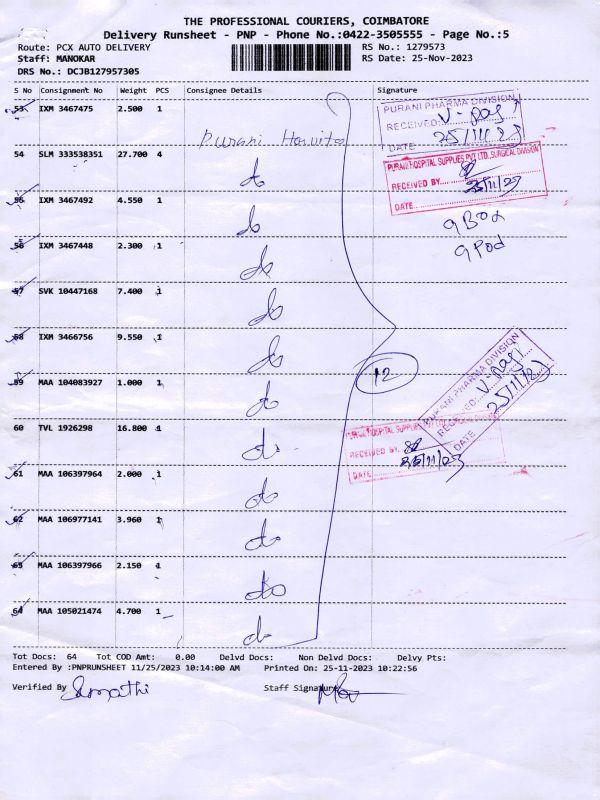 THE PROFESSIONAL COURIERS, COIMBATORE
Delivery Runsheet - PNP - Phone No.:0422-3505555 - Page No.:5
Route: PCX AUTO DELIVERY RS No.: 1279573
Staff: MANOKAR RS Date: 25-Nov-2023
DRS No.: DCJB127957305
S No Consignment No Weight PCS Consignee Details Signature
53 IXM 3467475 2.500 1
PURANI PHARMA DIVISION
RECEIVED
DATE 25/11/23
Purani
54 SLM 333538351 27.700 4
PURANI HOSPITAL SUPPLIES PVT LTD., SURGICAL DIVISION
RECEIVED BY
25/11/23
DATE
55 IXM 3467492 4.550 1
9 Box
9 Pod
56 IXM 3467448 2.300 1
57 SVK 10447168 7.400 1
58 IXM 3466756 9.550 1
12
59 MAA 104083927 1.000 1
PURANI PHARMA DIVISION
RECEIVED
DATE 25/11/23
60 TVL 1926298 16.800 1
RECEIVED BY
25/11/23
DATE
61 MAA 106397964 2.000 1
62 MAA 106977141 3.960 1
63 MAA 106397966 2.150 1
64 MAA 105021474 4.700 1
Tot Docs: 64 Tot COD Amt: 0.00 Delvd Docs: Non Delvd Docs: Delvy Pts:
Entered By :PNPRUNSHEET 11/25/2023 10:14:00 AM Printed On: 25-11-2023 10:22:56
Verified By Staff Signature